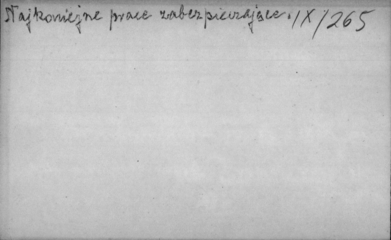 Najkoniejne prace zabezpieczające. IX/265